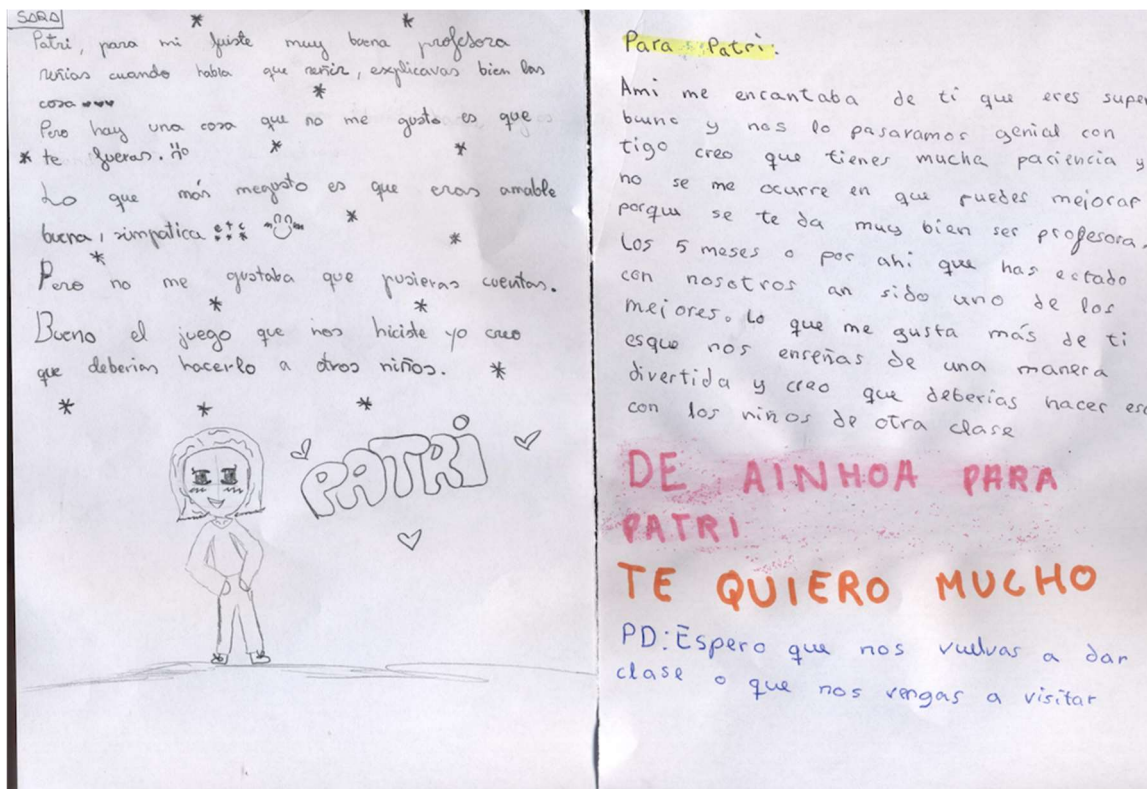 SARA
Patri, para mi fuiste muy buena profesora
reñias cuando habla que reñir, explicavas bien las
cosa ♥♥♥
Pero hay una cosa que no me gusto es que
te fueras.
Lo que más megusto es que eras amable
buena, simpatica etc
Pero no me gustaba que pusieras cuentas.
Bueno el juego que nos hiciste yo creo
que deberias hacerlo a otros niños.
PATRI
Para Patri.
Ami me encantaba de ti que eres super
buena y nos lo pasaramos genial con
tigo creo que tienes mucha paciencia y
no se me ocurre en que puedes mejorar
porque se te da muy bien ser profesora.
Los 5 meses o por ahi que has estado
con nosotros an sido uno de los
mejores. Lo que me gusta más de ti
esque nos enseñas de una manera
divertida y creo que deberias hacer eso
con los niños de otra clase
DE AINHOA PARA
PATRI
TE QUIERO MUCHO
PD: Espero que nos vuelvas a dar
clase o que nos vengas a visitar